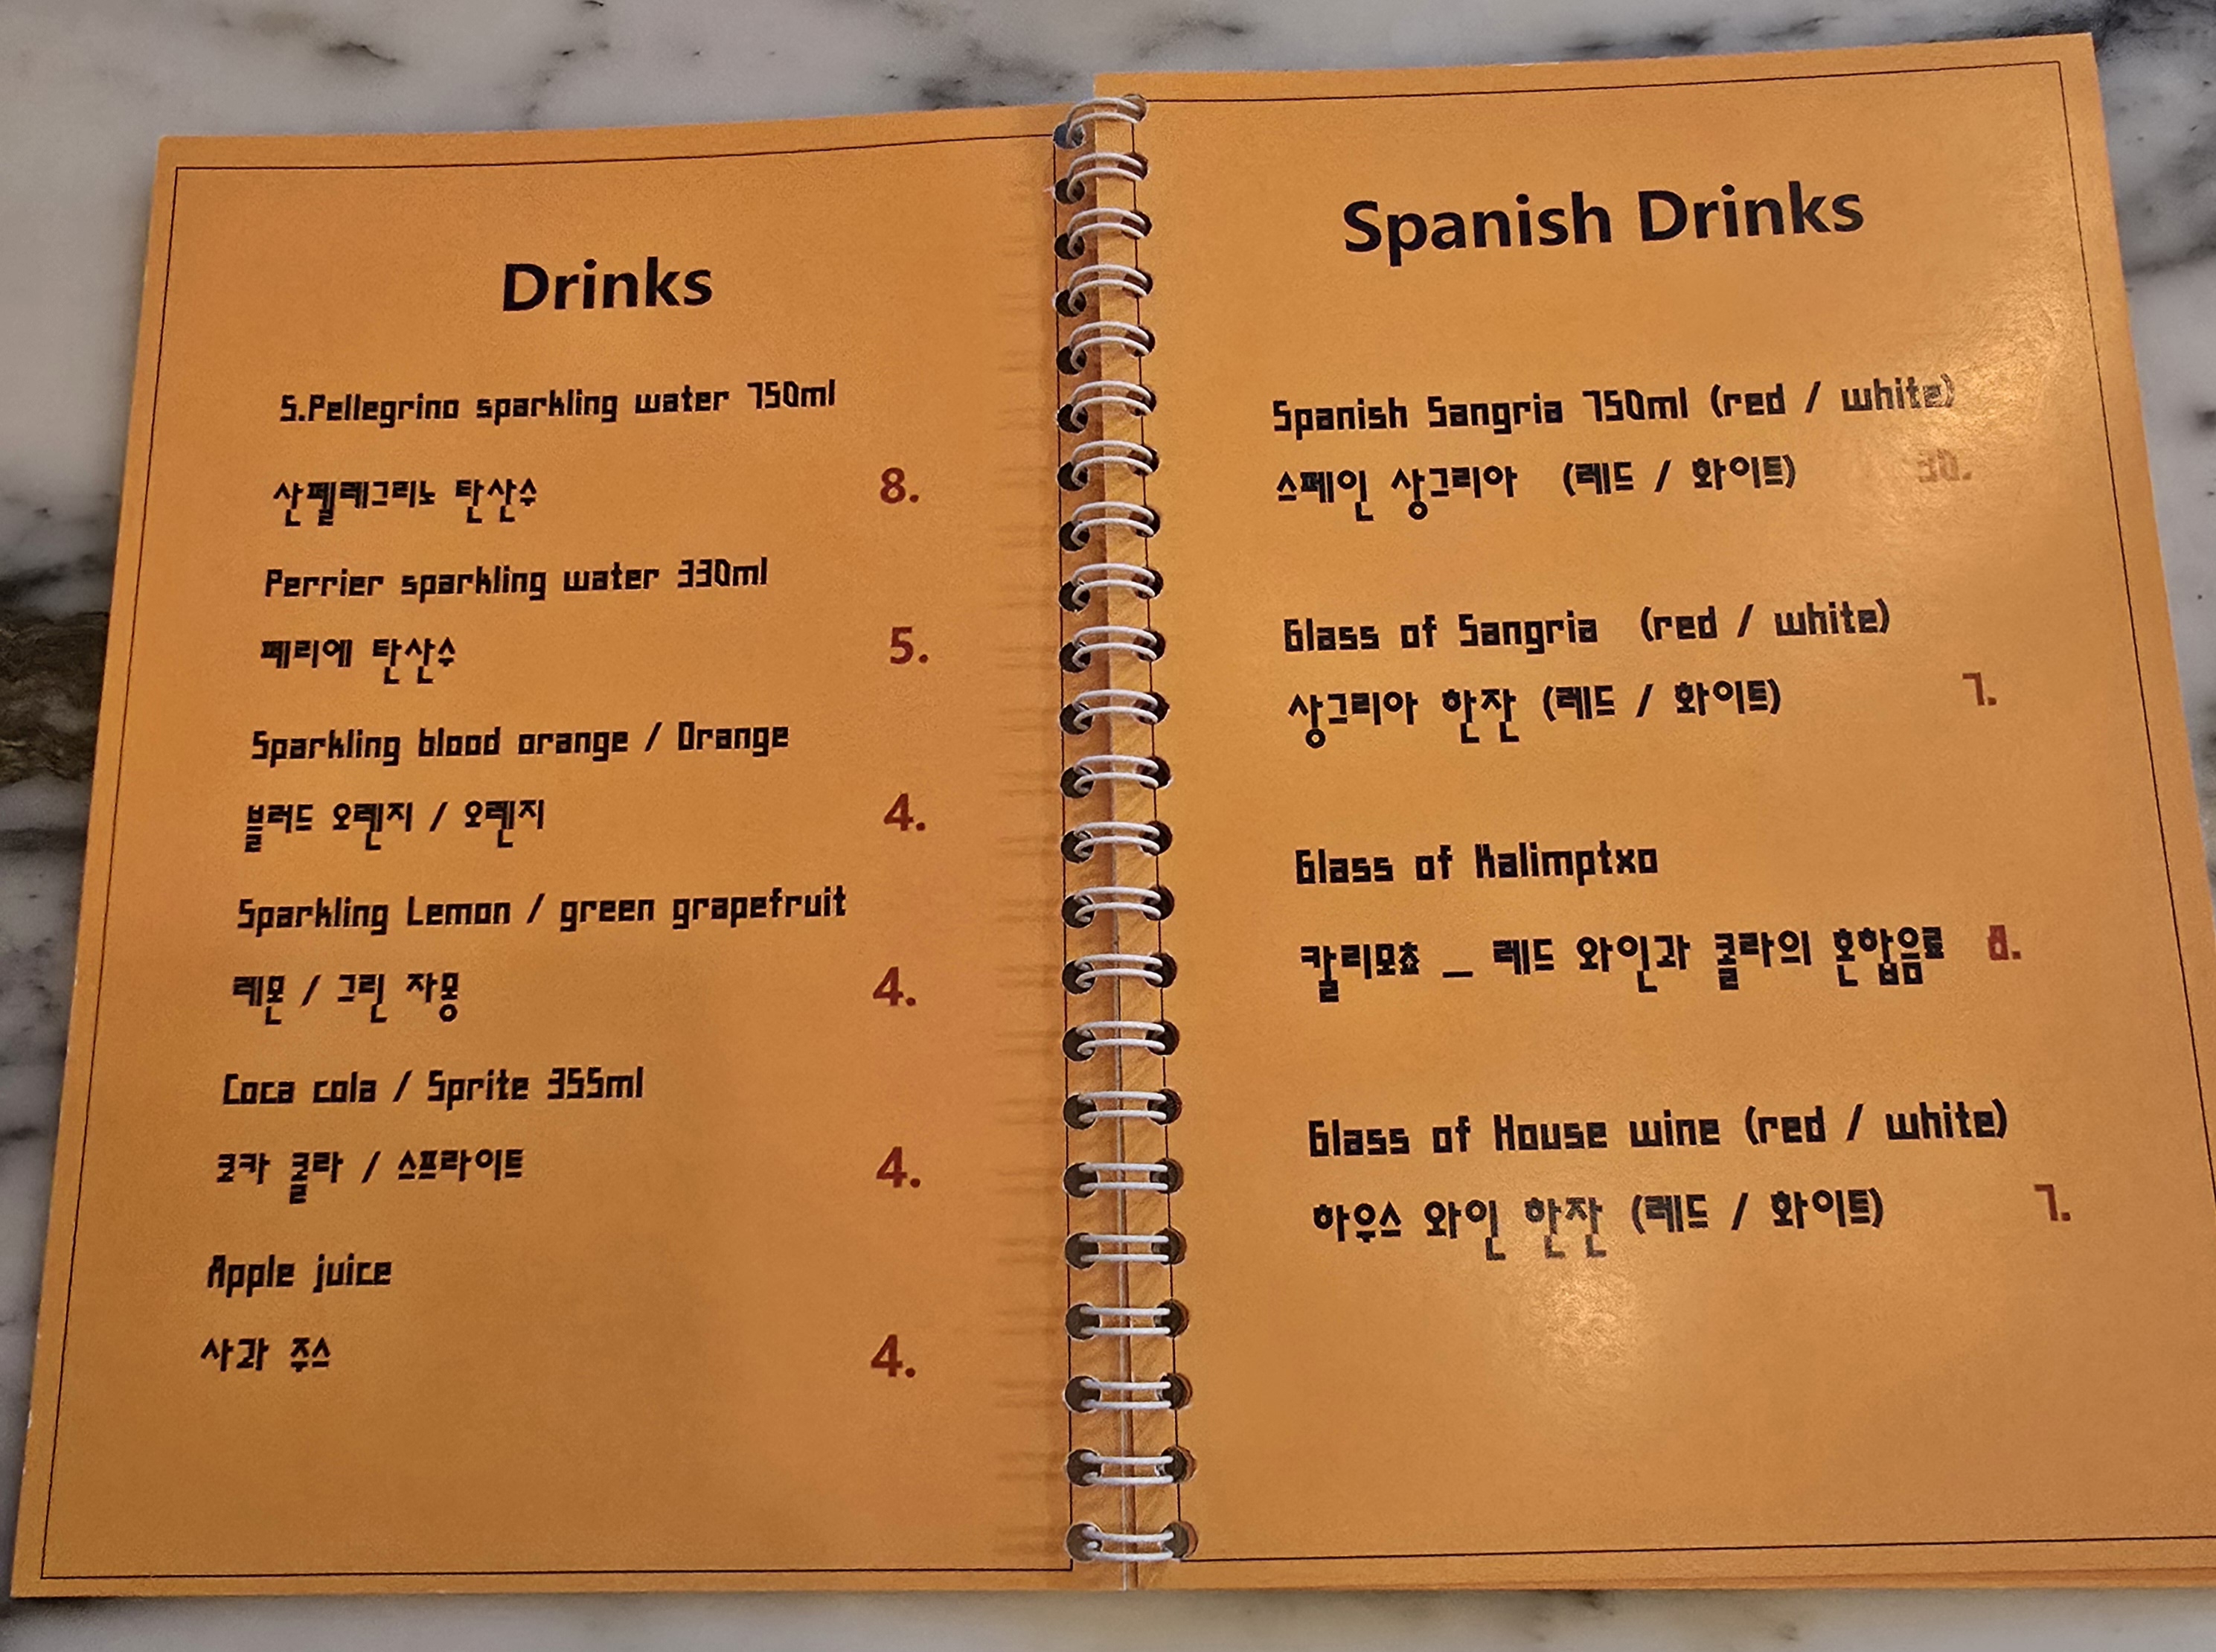 Drinks
S.Pellegrino sparkling water 750ml
산펠레그리노 탄산수 8.
Perrier sparkling water 330ml
페리에 탄산수 5.
Sparkling blood orange / Orange
블러드 오렌지 / 오렌지 4.
Sparkling Lemon / green grapefruit
레몬 / 그린 자몽 4.
Coca cola / Sprite 355ml
코카 콜라 / 스프라이트 4.
Apple juice
사과 주스 4.
Spanish Drinks
Spanish Sangria 750ml (red / white)
스페인 상그리아 (레드 / 화이트) 30.
Glass of Sangria (red / white)
상그리아 한잔 (레드 / 화이트) 7.
Glass of Kalimptxo
칼리모쵸 _ 레드 와인과 콜라의 혼합음료 8.
Glass of House wine (red / white)
하우스 와인 한잔 (레드 / 화이트) 7.